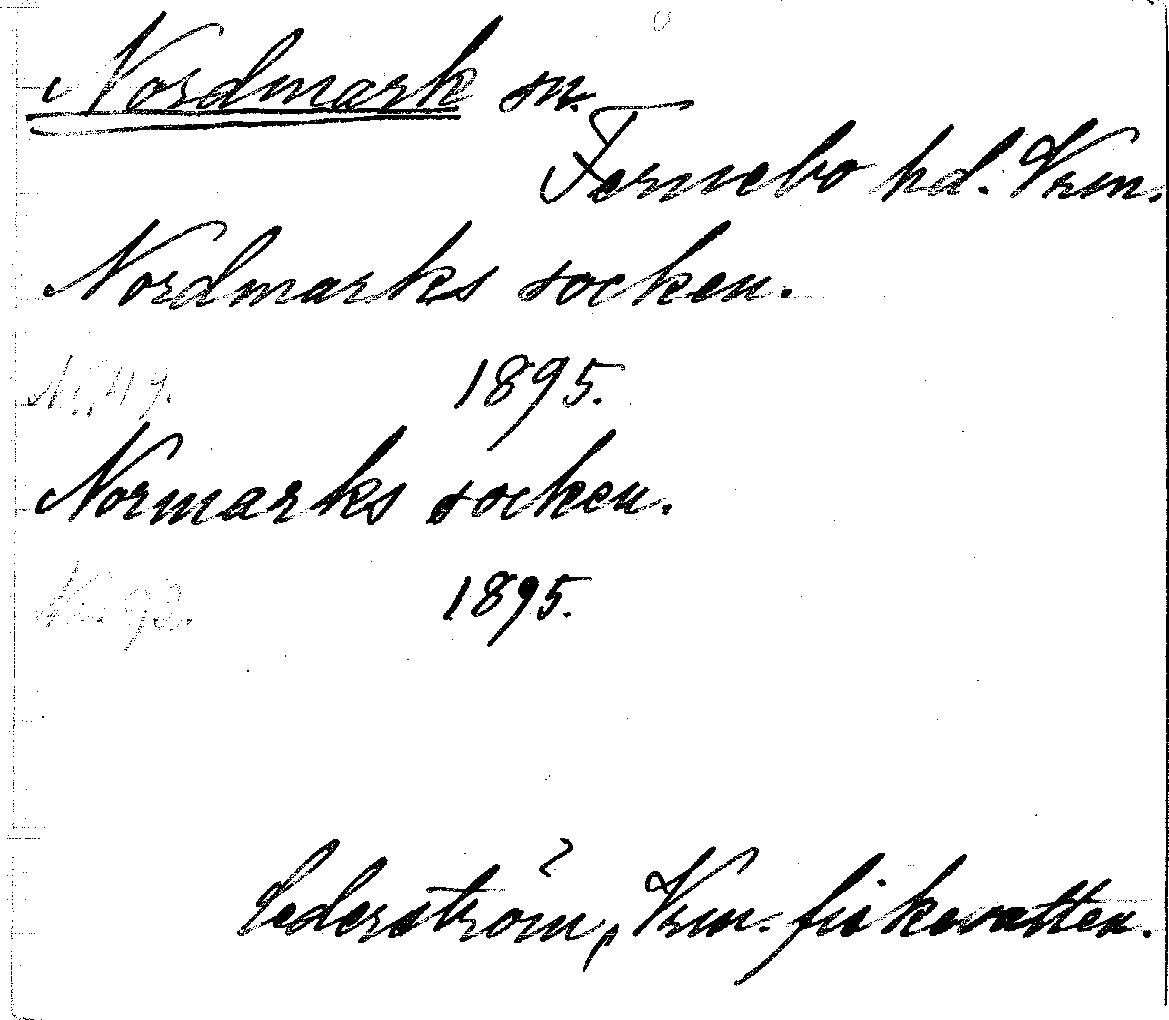 Nordmark sn.
Fernebo hd. Vrm.
Nordmarks socken.
1895.
Normarks socken.
1895.
Cederström, Vrm. fiskevatten.